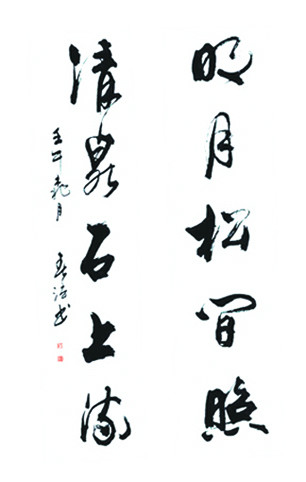 明月松间照
清泉石上流
壬午
月
书